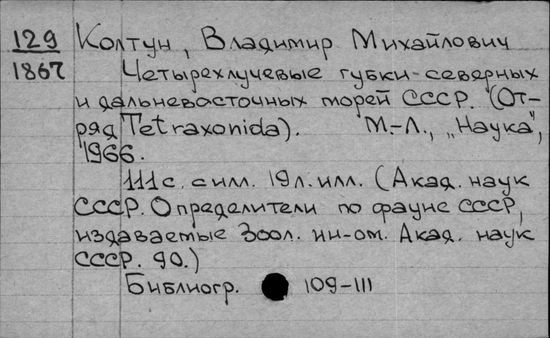 129 Колтун, Владимир Михайлович
1867 Четырехлучевые губки северных
и дальневосточных морей СССР. (От-
ряд Tetraxonida). М.-Л., „Наука",
1966.
111 с. с илл. 19 л. илл. (Акад. наук
СССР. Определители по фауне СССР,
издаваемые Зоол. ин-ом. Акад. наук
СССР. 90.)
Библиогр. 109-111